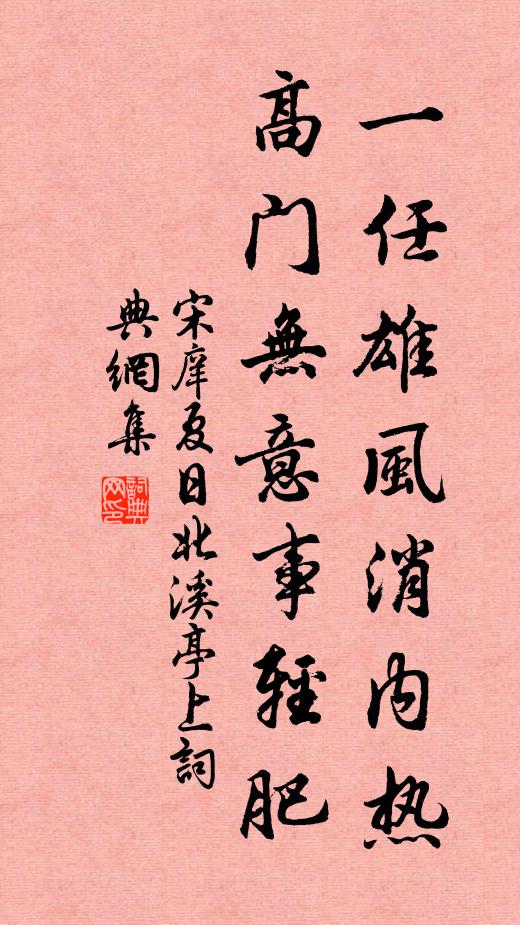 一任雄風消内热
高门無意事輕肥
宋庠夏日北溪亭上詞
典網集
詞典
网印